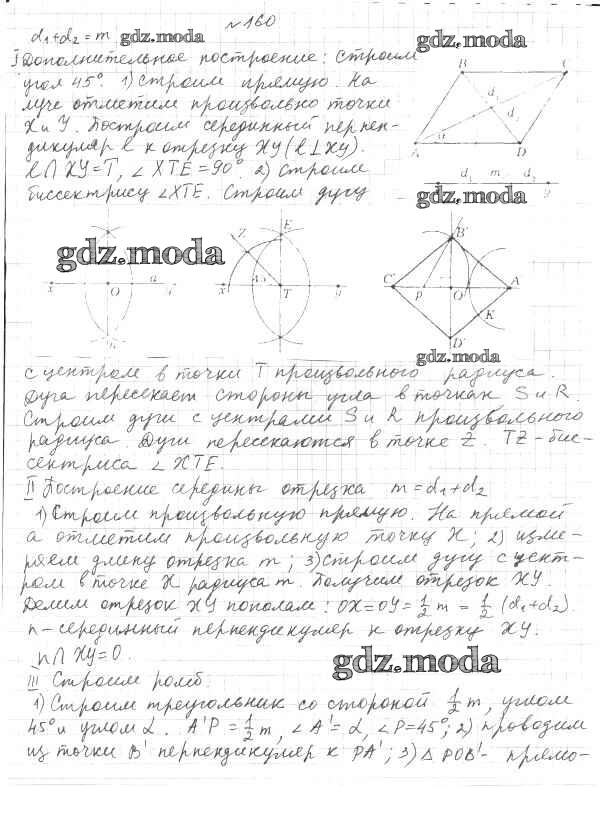 №160
d₁+d₂ = m gdz.moda
I Дополнительное построение: Строим
угол 45°. 1) Строим прямую. На
луче отметим произвольно точки
X и Y. Построим серединный перпен-
дикуляр l к отрезку XY (l⊥XY).
l∩XY=T, ∠XTE=90°. 2) Строим
биссектрису ∠XTE. Строим дугу
gdz.moda
B C
d₁
d₂
α
A D
d₁ m d₂
y
gdz.moda
gdz.moda
x O a y
Z E
45°
x T y
B'
C' P O' A'
K
D'
gdz.moda
с центром в точки T произвольного радиуса.
Дуга пересекает стороны угла в точках S и R.
Строим дуги с центрами S и R произвольного
радиуса. Дуги пересекаются в точке Z. TZ – бис-
сектриса ∠XTE.
II Построение середины отрезка m=d₁+d₂
1) Строим произвольную прямую. На прямой
a отметим произвольную точку X; 2) изме-
ряем длину отрезка m; 3) Строим дугу с цент-
ром в точке X радиуса m. Получим отрезок XY.
Делим отрезок XY пополам: OX=OY=½m=½(d₁+d₂).
n – серединный перпендикуляр к отрезку XY.
n∩XY=O.
gdz.moda
III Строим ромб:
1) Строим треугольник со стороной ½m, углом
45° и углом α. A'P=½m, ∠A'=α, ∠P=45°; 2) проводим
из точки B' перпендикуляр к PA'; 3) △POB' – прямо-